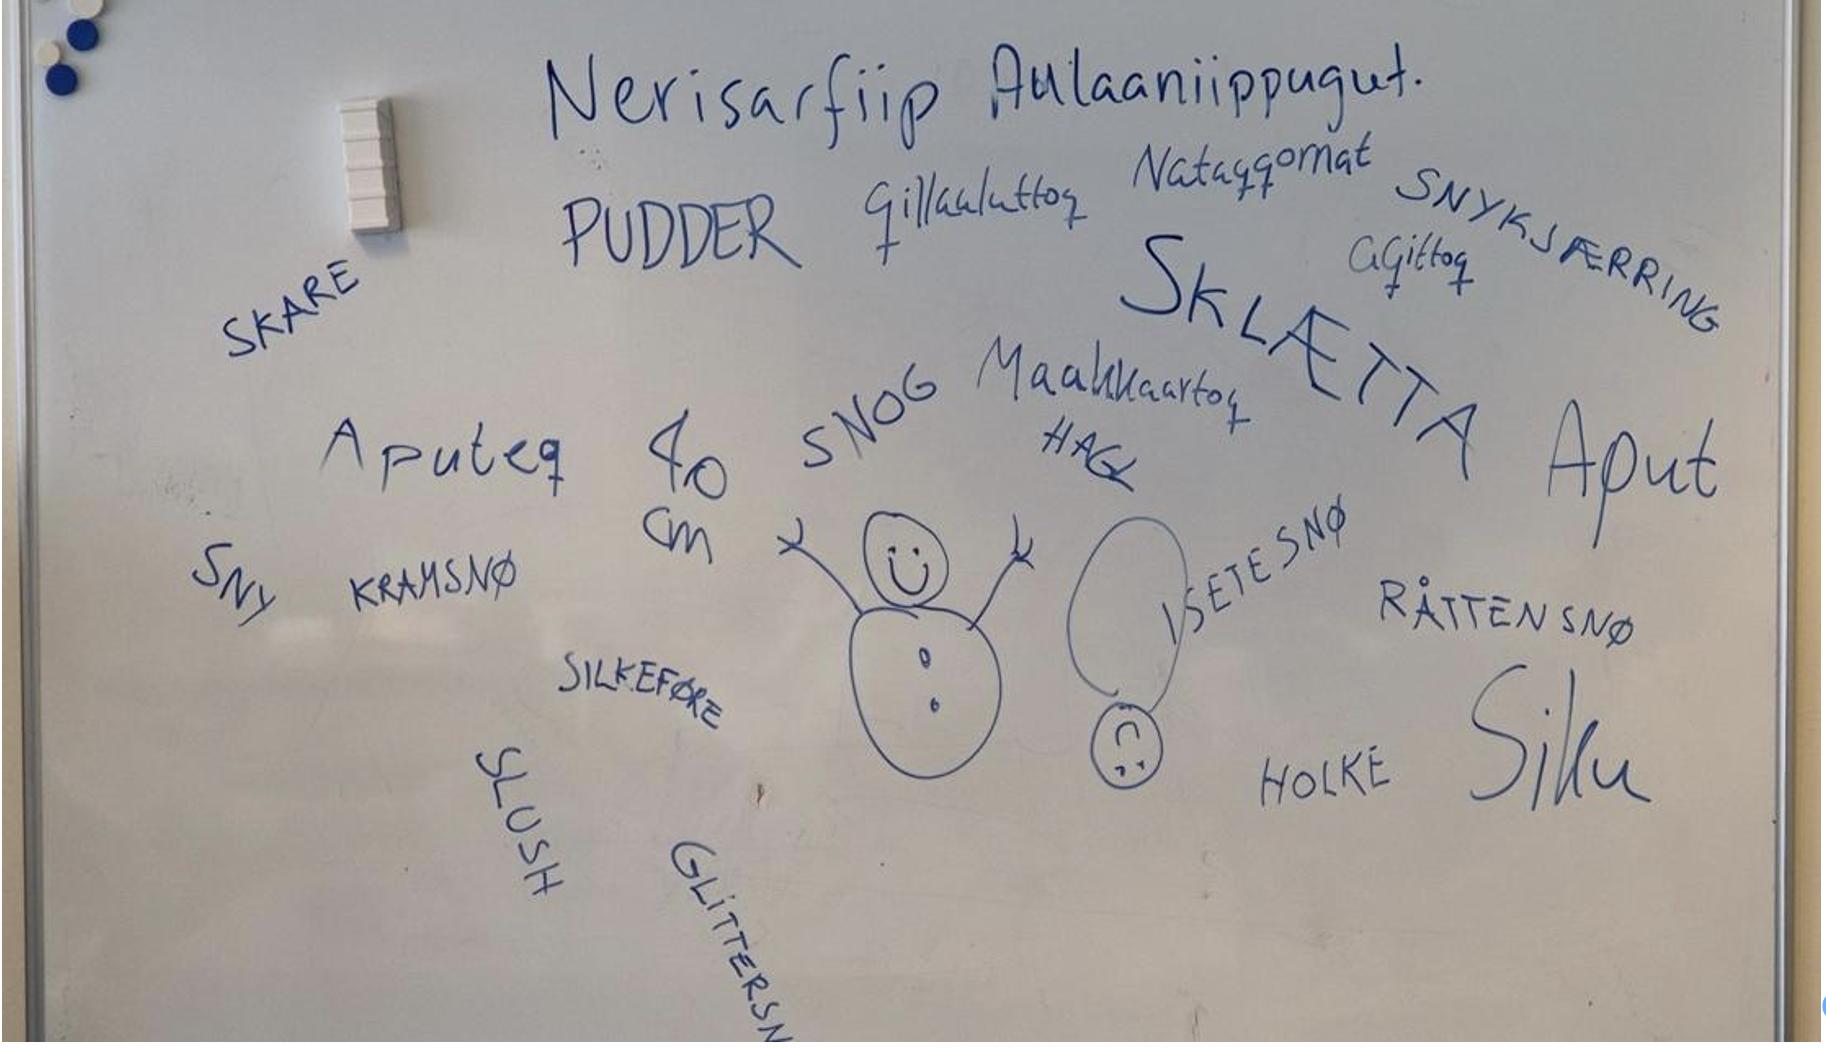 Nerisarfiip Aulaaniippugut.
PUDDER
Qillaaluttoq
Nataqqornat
SNYKSJÆRRING
SKARE
SKLÆTTA
aqittoq
SNOG
Maakkaartoq
HAGL
Aputeq
40
cm
Aput
SNY
KRAMSNØ
ISETESNØ
RÅTTEN SNØ
SILKEFØRE
SLUSH
HOLKE
Siku
GLITTERSN